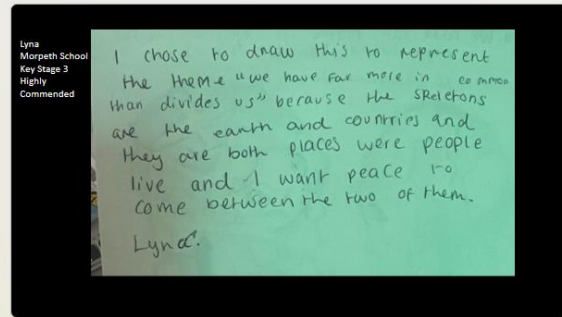 Lyna
Morpeth School
Key Stage 3
Highly
Commended
I chose to draw this to represent
the theme "we have far more in common
than divides us" because the skeletons
are the earth and countries and
they are both places were people
live and I want peace to
come between the two of them.
Lyna.